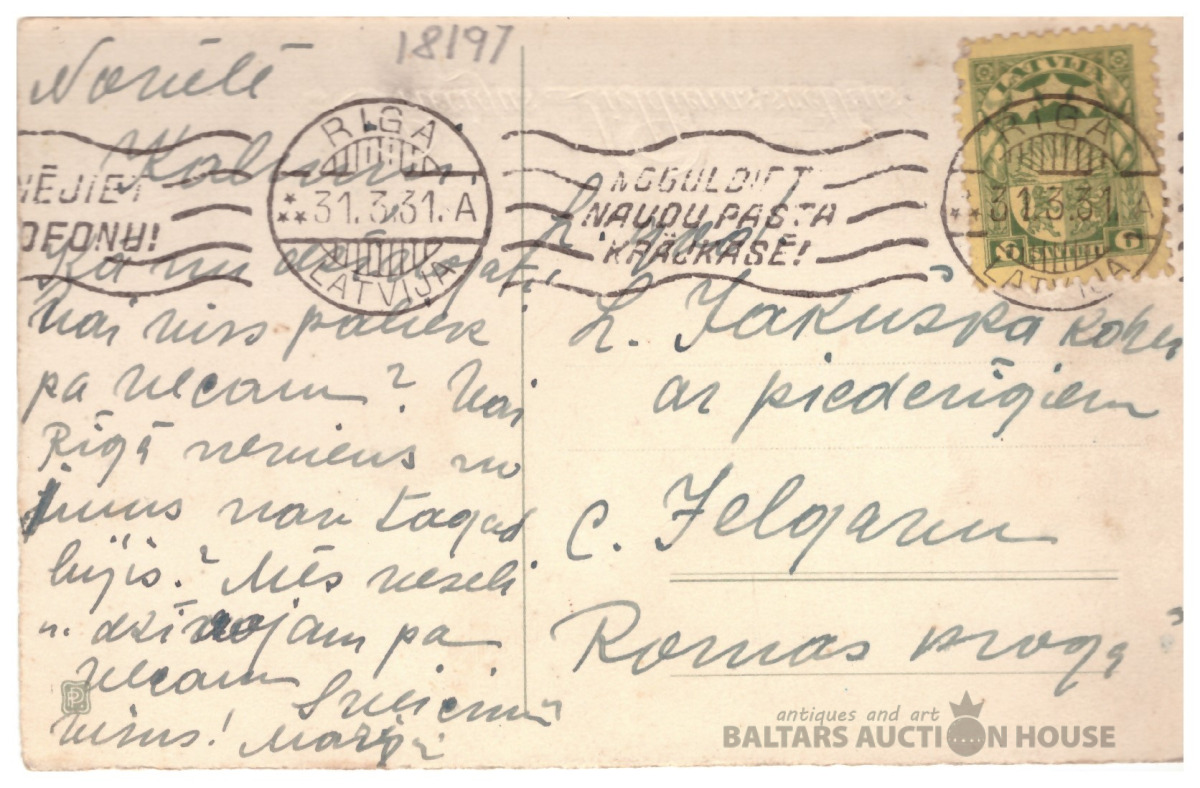 18197
Novēlē
RIGA
31.3.31. A
LATVIJA
NOGULDIET
NAUDU PASTA
KRĀJKASĒ!
LATVIJA
6 SANTIMI 6
RIGA
31.3.31 A
LATVIJA
Kā nu
Vai viss paliek
pa vecam? Vai
Rīgā neviens no
Jums nav tagad
bijis? Mēs veseli
un dzīvojam pa
vecam Sveicinu
visus!
L. Jakuška
ar piederīgiem
c. Jelgavu
Romas
antiques and art
BALTARS AUCTION HOUSE